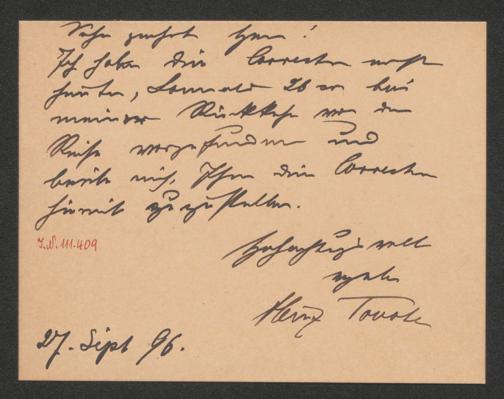 Sehr geehrter Herr!
Ich habe die Correctur erst
heute, Sonnabd 26 er bei
meiner Rückkehr von der
Reise vorgefunden und
beeile mich, Ihnen die Correctur
hiermit zuzustellen.
Hochachtungsvoll
Heinz Tovote
I.N. 111.409
27. Sept 96.